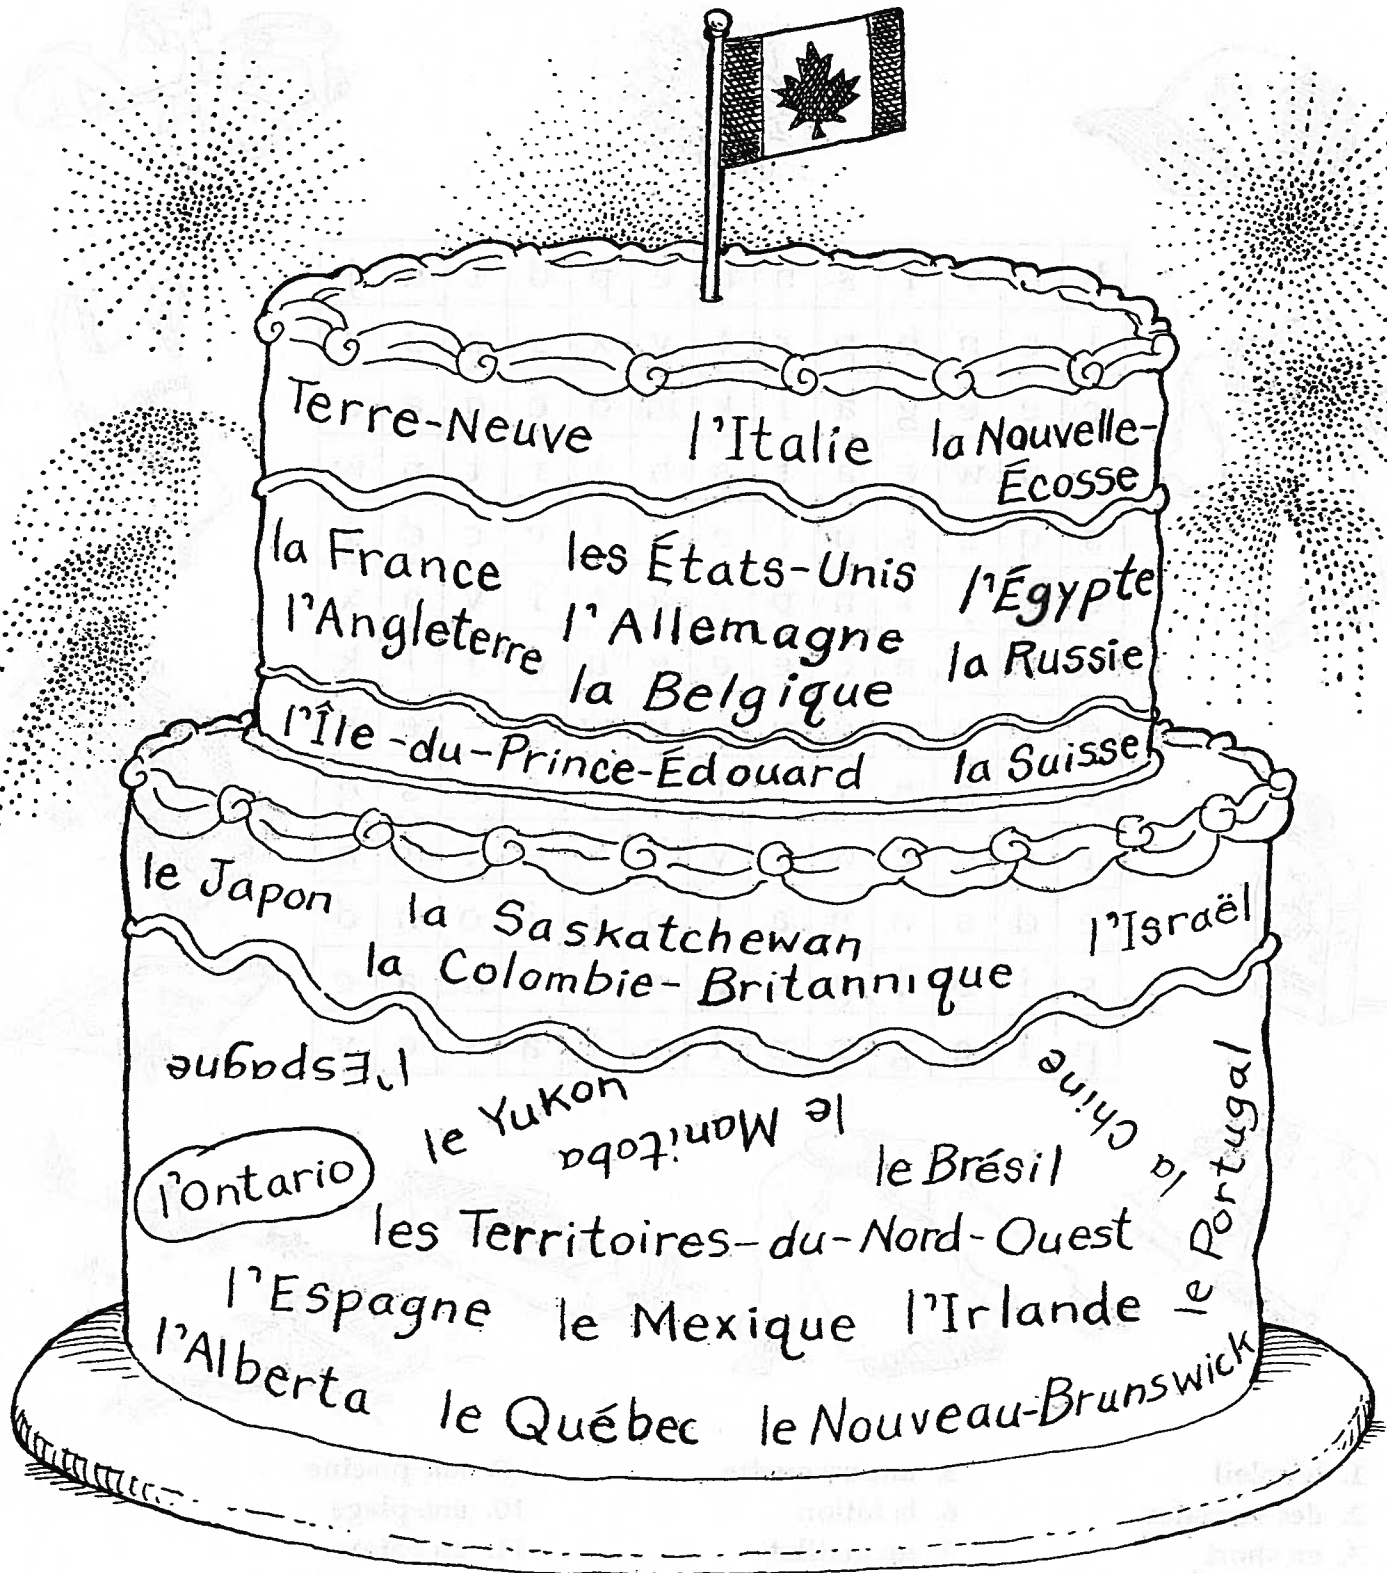 Terre-Neuve
l'Italie
la Nouvelle-
Écosse
la France
les États-Unis
l'Égypte
l'Angleterre
l'Allemagne
la Russie
la Belgique
l'Île-du-Prince-Édouard
la Suisse
le Japon
la Saskatchewan
l'Israël
la Colombie-Britannique
l'Espagne
le Yukon
le Manitoba
la Chine
le Portugal
l'Ontario
le Brésil
les Territoires-du-Nord-Ouest
l'Espagne
le Mexique
l'Irlande
l'Alberta
le Québec
le Nouveau-Brunswick